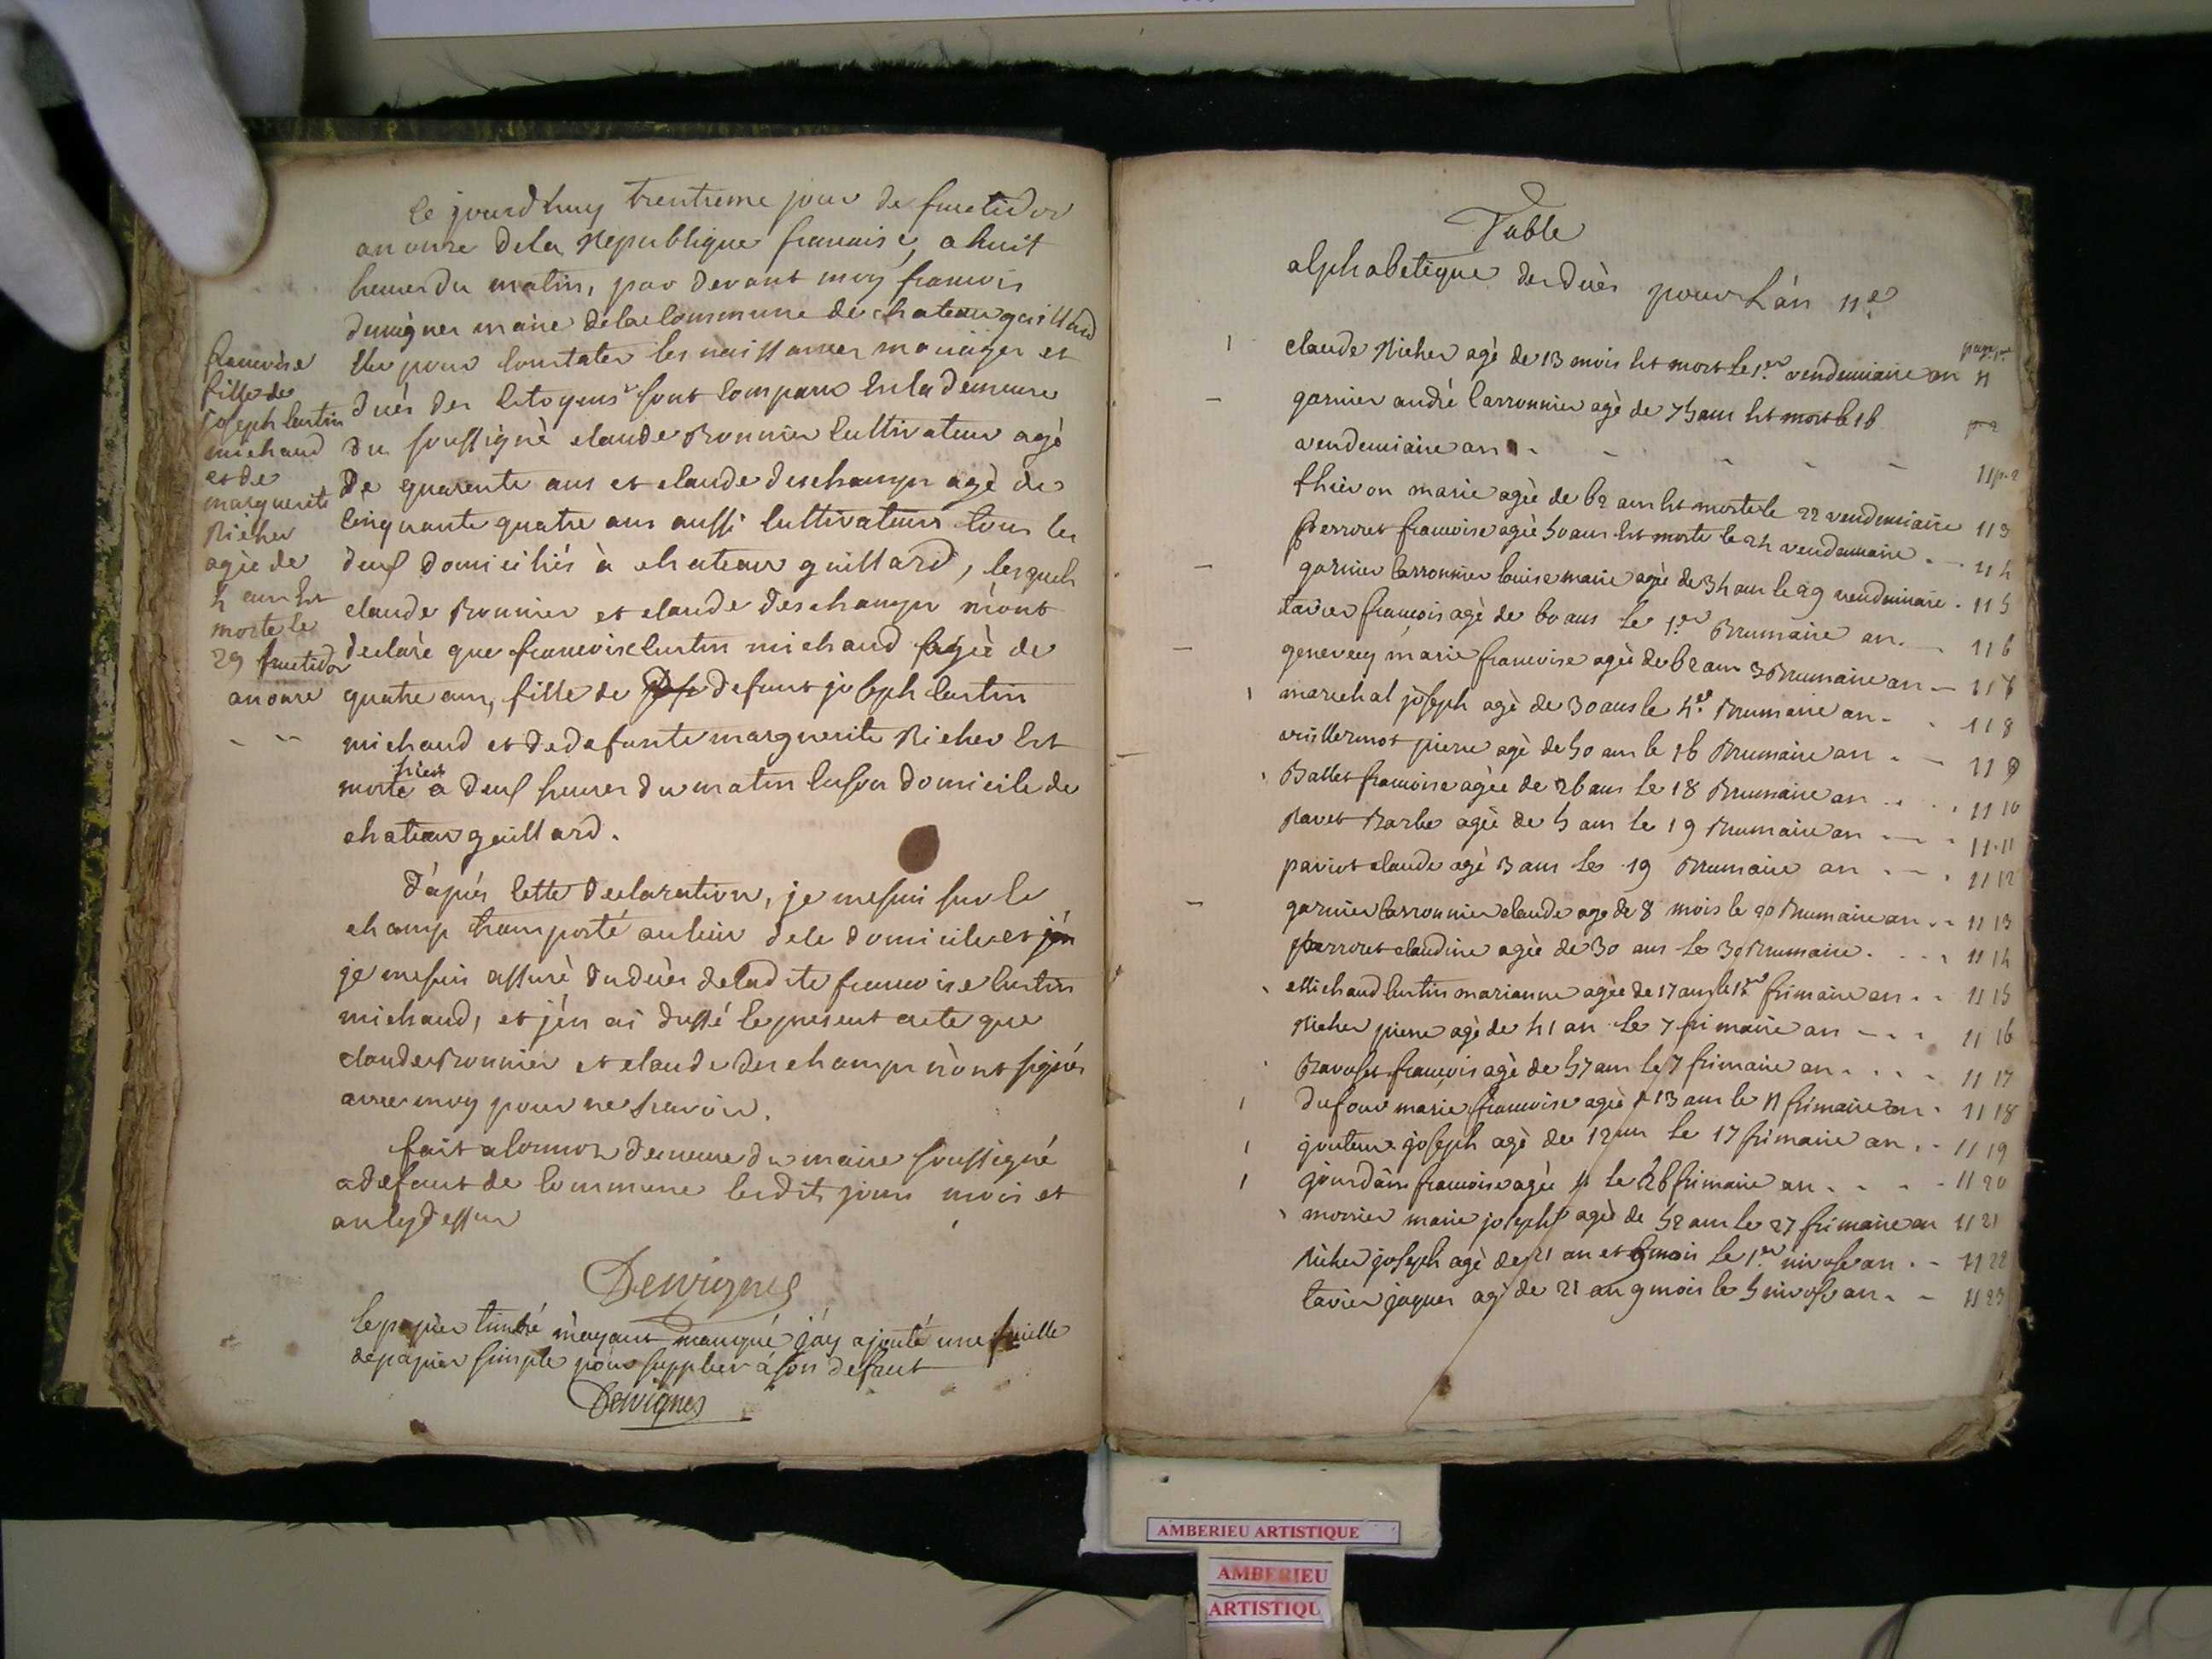 le jourdhuy trentieme jour de fructidor
an onze de la Republique francaise, a huit
heures du matin, par devant moy francois
Dervignes maire de la Commune de chateaugaillard
elu pour Constater les naissances mariages et
duès des Citoyens sont Comparu En la demeure
du soussignè claude Bonnier Cultivateur agè
De quarente ans et claude deschamps agè de
Cinquante quatre ans aussi Cultivateurs tous les
deus domiciliés à chateau gaillard, lesquels
claude Bonnier et claude deschamps m'ont
declarè que francoise Curtin michaud agèè de
quatre ans, fille de defunt joseph Curtin
michaud et de defunte marguerite Richer Est
morte hier a deus heures du matin En son domicile de
chateau gaillard.
francoise
fille de
joseph Curtin
michaud
et de
marguerite
Richer
agèe de
4 ans Est
morte le
29 fructidor
an onze
D'après Cette declaration, je me suis sur le
champ transporté au lieu de le domicile et
je me suis assurè du duès de ladite francoise Curtin
michaud, et j'en ai dressé le present acte que
claude Bonnier et claude des champs n'ont signés
avec moy pour ne scavoir.
fait a Cormoz demeure du maire soussigné
a defaut de Commune lesdits jours mois et
an Cy dessus
Dervignes
le papier timbré m'ayant manqué j'ay ajouté une feuille
de papier simple pour supplier à son defaut
Dervignes
Table
alphabetique des duès pour L'an 11e
page 1re
claude Richer agè de 13 mois Est mort le 1er vendemiaire an 11
garnier andrè Carronnier agè de 75 ans Est mort le 16 p 2
vendemiaire an 11 p. 2
thievon marie agèe de 62 ans Est morte le 22 vendemiaire 11 3
perroret francoise agèè 50 ans Est morte le 24 vendemiaire 11 4
garnier Carronnier louise marie agèe de 34 ans le 29 vendemiaire 11 5
tavier francois agè de 60 ans le 1er Brumaire an 11 6
genevey marie francoise agèè de 62 ans 3 Brumaire an 11 7
marechal joseph agè de 30 ans le 4e Brumaire an 11 8
vuillermot pierre agè de 50 ans le 16 Brumaire an 11 9
Ballet francoise agèe de 26 ans le 18 Brumaire an 11 10
Ravet Barbe agèè de 5 ans le 19 Brumaire an 11 11
pariot claude agè 3 ans le 19 Brumaire an 11 12
garnier Carronnier claude age de 8 mois le 20 Brumaire an 11 13
perroret claudine agèe de 30 ans le 30 Brumaire 11 14
Michaud Curtin marianne agèe de 17 ans le 1er frimaire an 11 15
Richer pierre agè de 41 an le 7 frimaire an 11 16
Bravoset françois agè de 57 ans le 7 frimaire an 11 17
dufour marie francoise agèè 13 ans le 11 frimaire an 11 18
joseph agè de 12 ans le 17 frimaire an 11 19
gourdain francoise agèe le 26 frimaire an 11 20
morrier marie joseph agèe de 52 ans le 27 frimaire an 11 21
Richer joseph agè de 21 an et 9 mois le 1er nivose an 11 22
tavier jaques agè de 21 an 9 mois le 5 nivose an 11 23
AMBERIEU ARTISTIQUE
AMBERIEU
ARTISTIQU